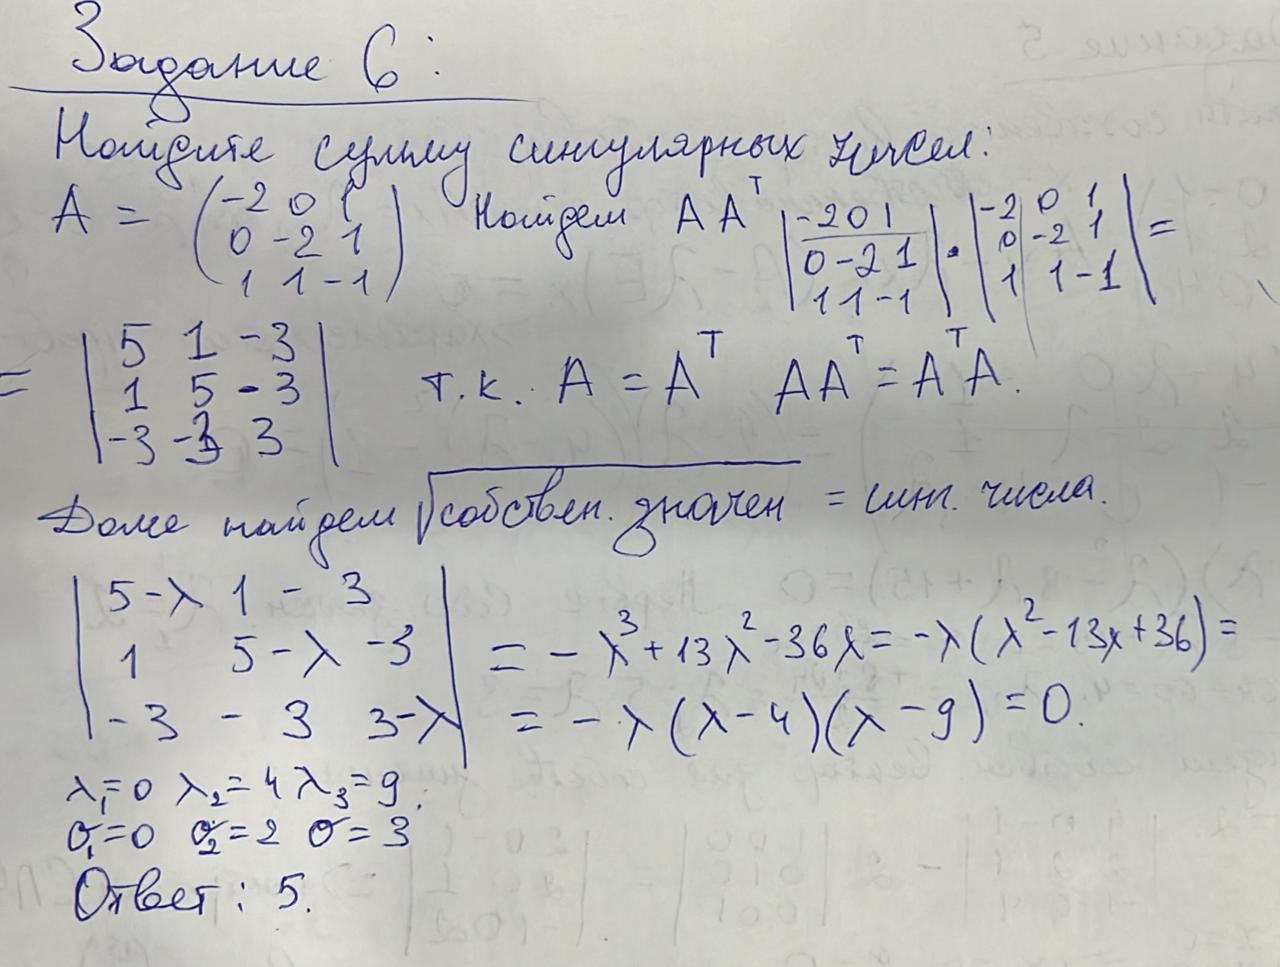 Задание 6:
Найдите сумму сингулярных чисел:
A = (-2 0 1 / 0 -2 1 / 1 1 -1) Найдем AAᵀ |-2 0 1 / 0 -2 1 / 1 1 -1| · |-2 0 1 / 0 -2 1 / 1 1 -1| =
= |5 1 -3 / 1 5 -3 / -3 -3 3| т.к. A = Aᵀ AAᵀ = AᵀA.
Далее найдем √собствен. значен = синг. числа.
|5-λ 1 -3 / 1 5-λ -3 / -3 -3 3-λ| = -λ³+13λ²-36λ = -λ(λ²-13λ+36) =
= -λ(λ-4)(λ-9) = 0.
λ₁=0 λ₂=4 λ₃=9.
σ₁=0 σ₂=2 σ=3
Ответ: 5.